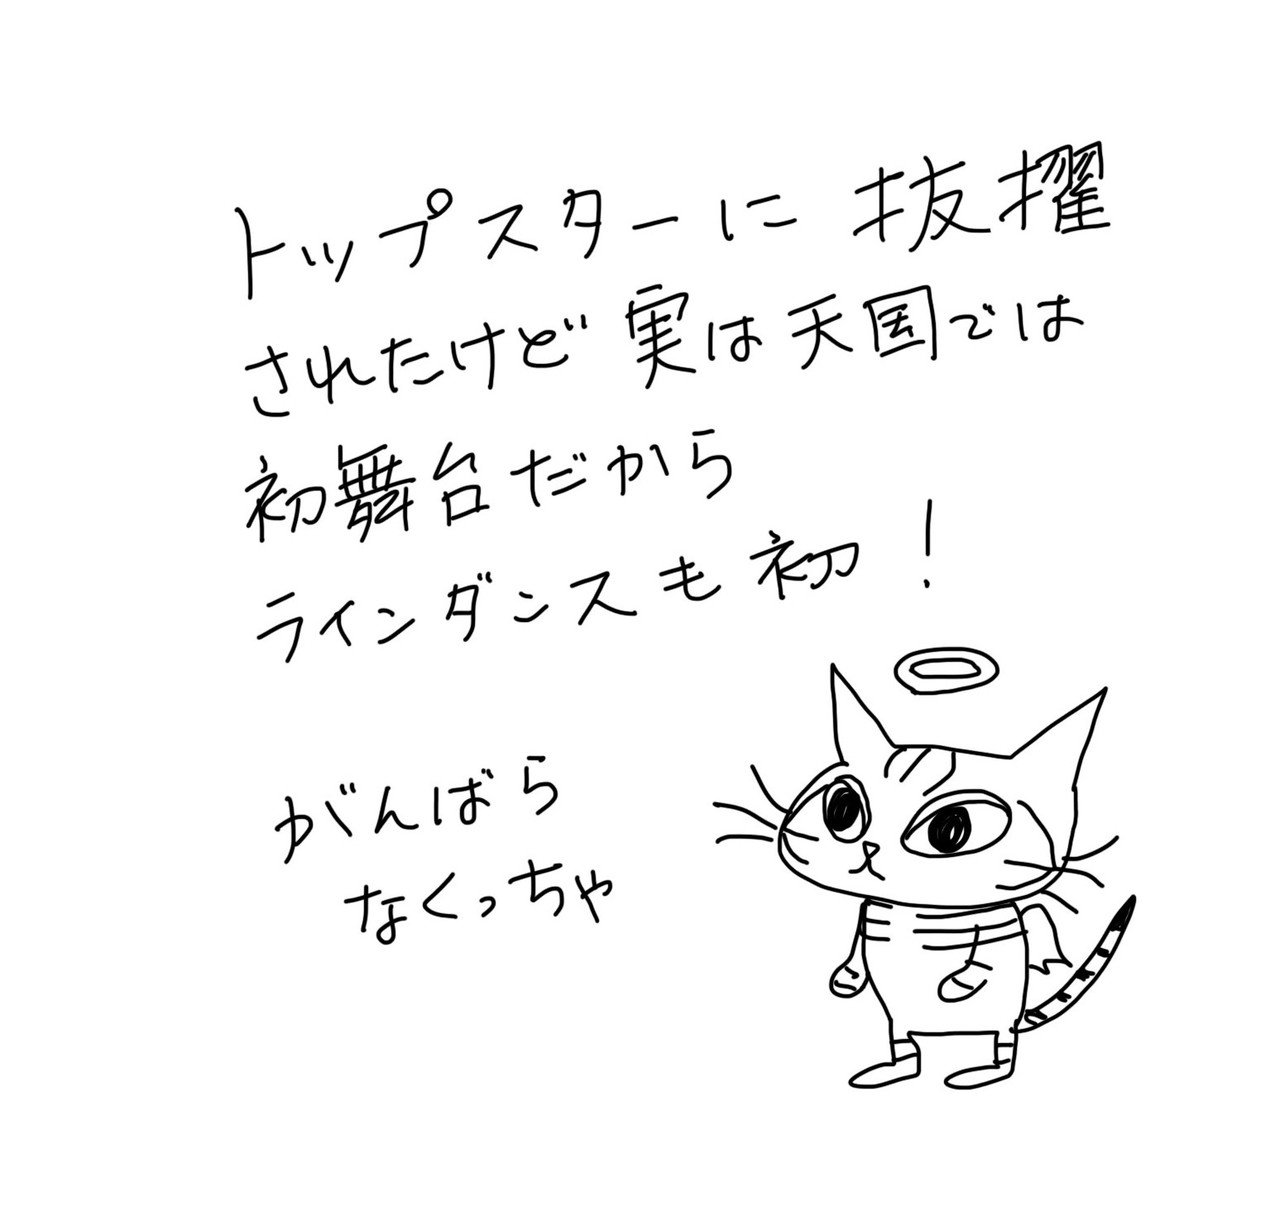 トップスターに抜擢
されたけど実は天国では
初舞台だから
ラインダンスも初！
がんばら
なくっちゃ